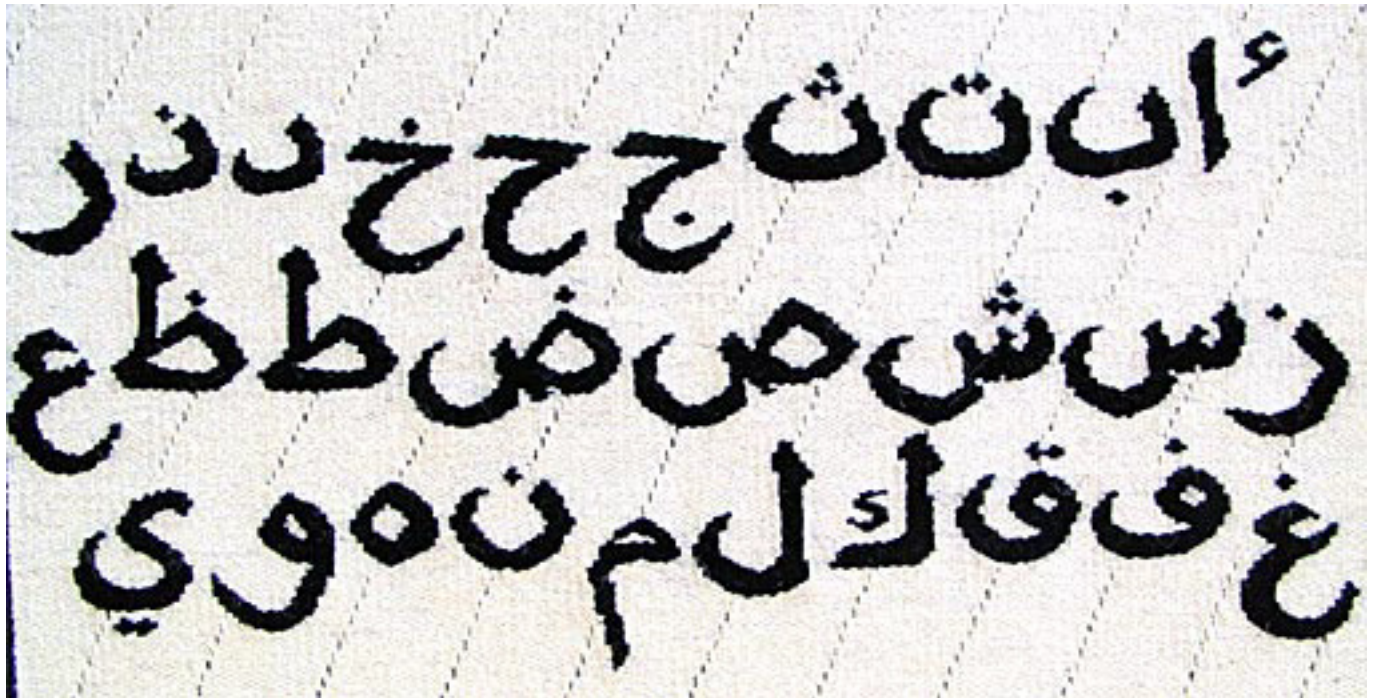 ء ا ب ت ث ج ح خ د ذ ر
ز س ش ص ض ط ظ ع
غ ف ق ك ل م ن ه و ي